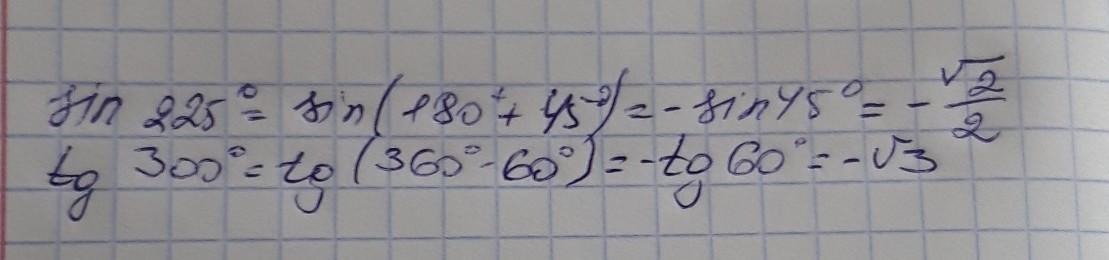 sin 225° = sin(180° + 45°) = - sin 45° = - √2/2
tg 300° = tg (360° - 60°) = - tg 60° = - √3